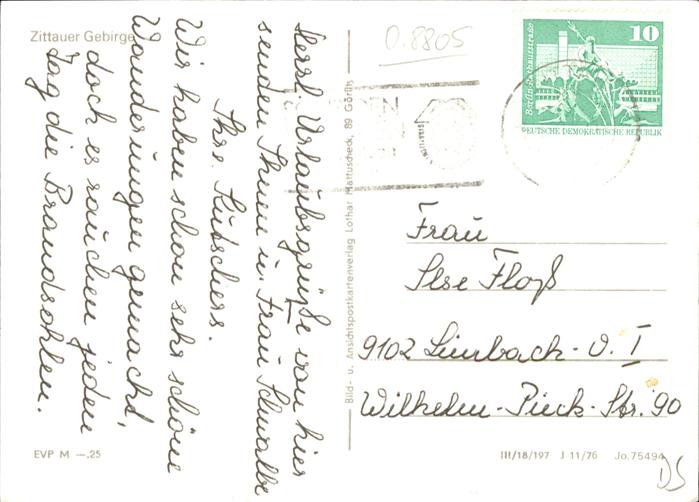 Zittauer Gebirge
0.8805
Herzl. Urlaubsgrüße von hier
senden Ihnen u. Frau Schwalbe
Ihre Kutschers.
Wir haben schon sehr schöne
Wanderungen gemacht,
doch es rauchen jeden
Tag die Brandsohlen.
EVP M —,25
Bild- u. Ansichtspostkartenverlag Lothar Mattuscheck, 89 Görlitz
10
Berlin, Rathausstraße
DEUTSCHE DEMOKRATISCHE REPUBLIK
Frau
Ilse Floß
9102 Limbach-O. I
Wilhelm-Pieck-Str. 90
III/18/197 J 11/76 Jo.75494
DS